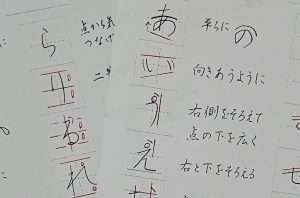 あ 平らに の
い 向きあうように
う 右側をそろえて
点の下を広く
え 右と下をそろえる
せ
も
ら 点から気
つなげ
り 二
る
れ